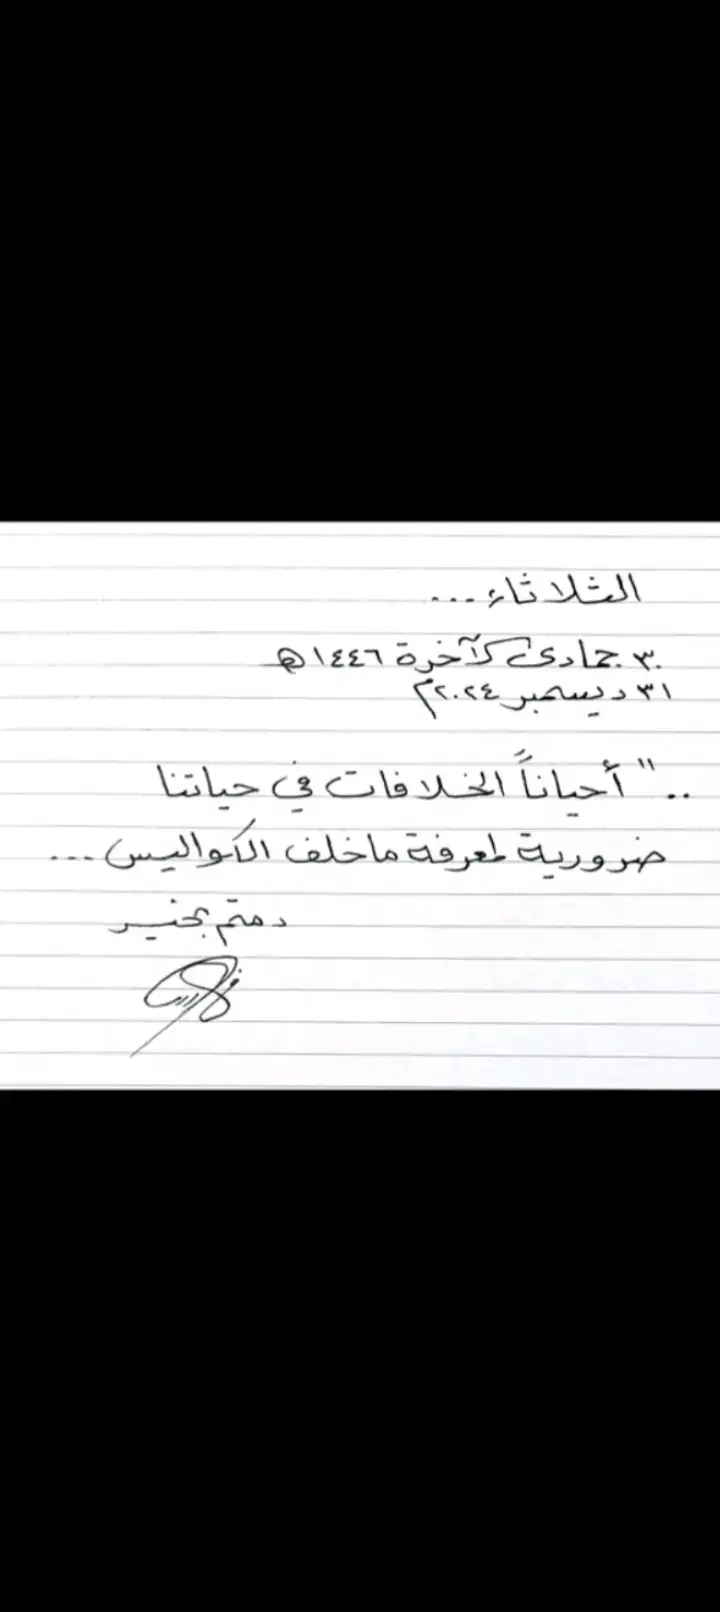 الثلاثاء...
٣٠ جمادى الآخرة ١٤٤٦ هـ
٣١ ديسمبر ٢٠٢٤م
.." أحياناً الخلافات في حياتنا
ضرورية لمعرفة ماخلف الكواليس...
دمتم بخير